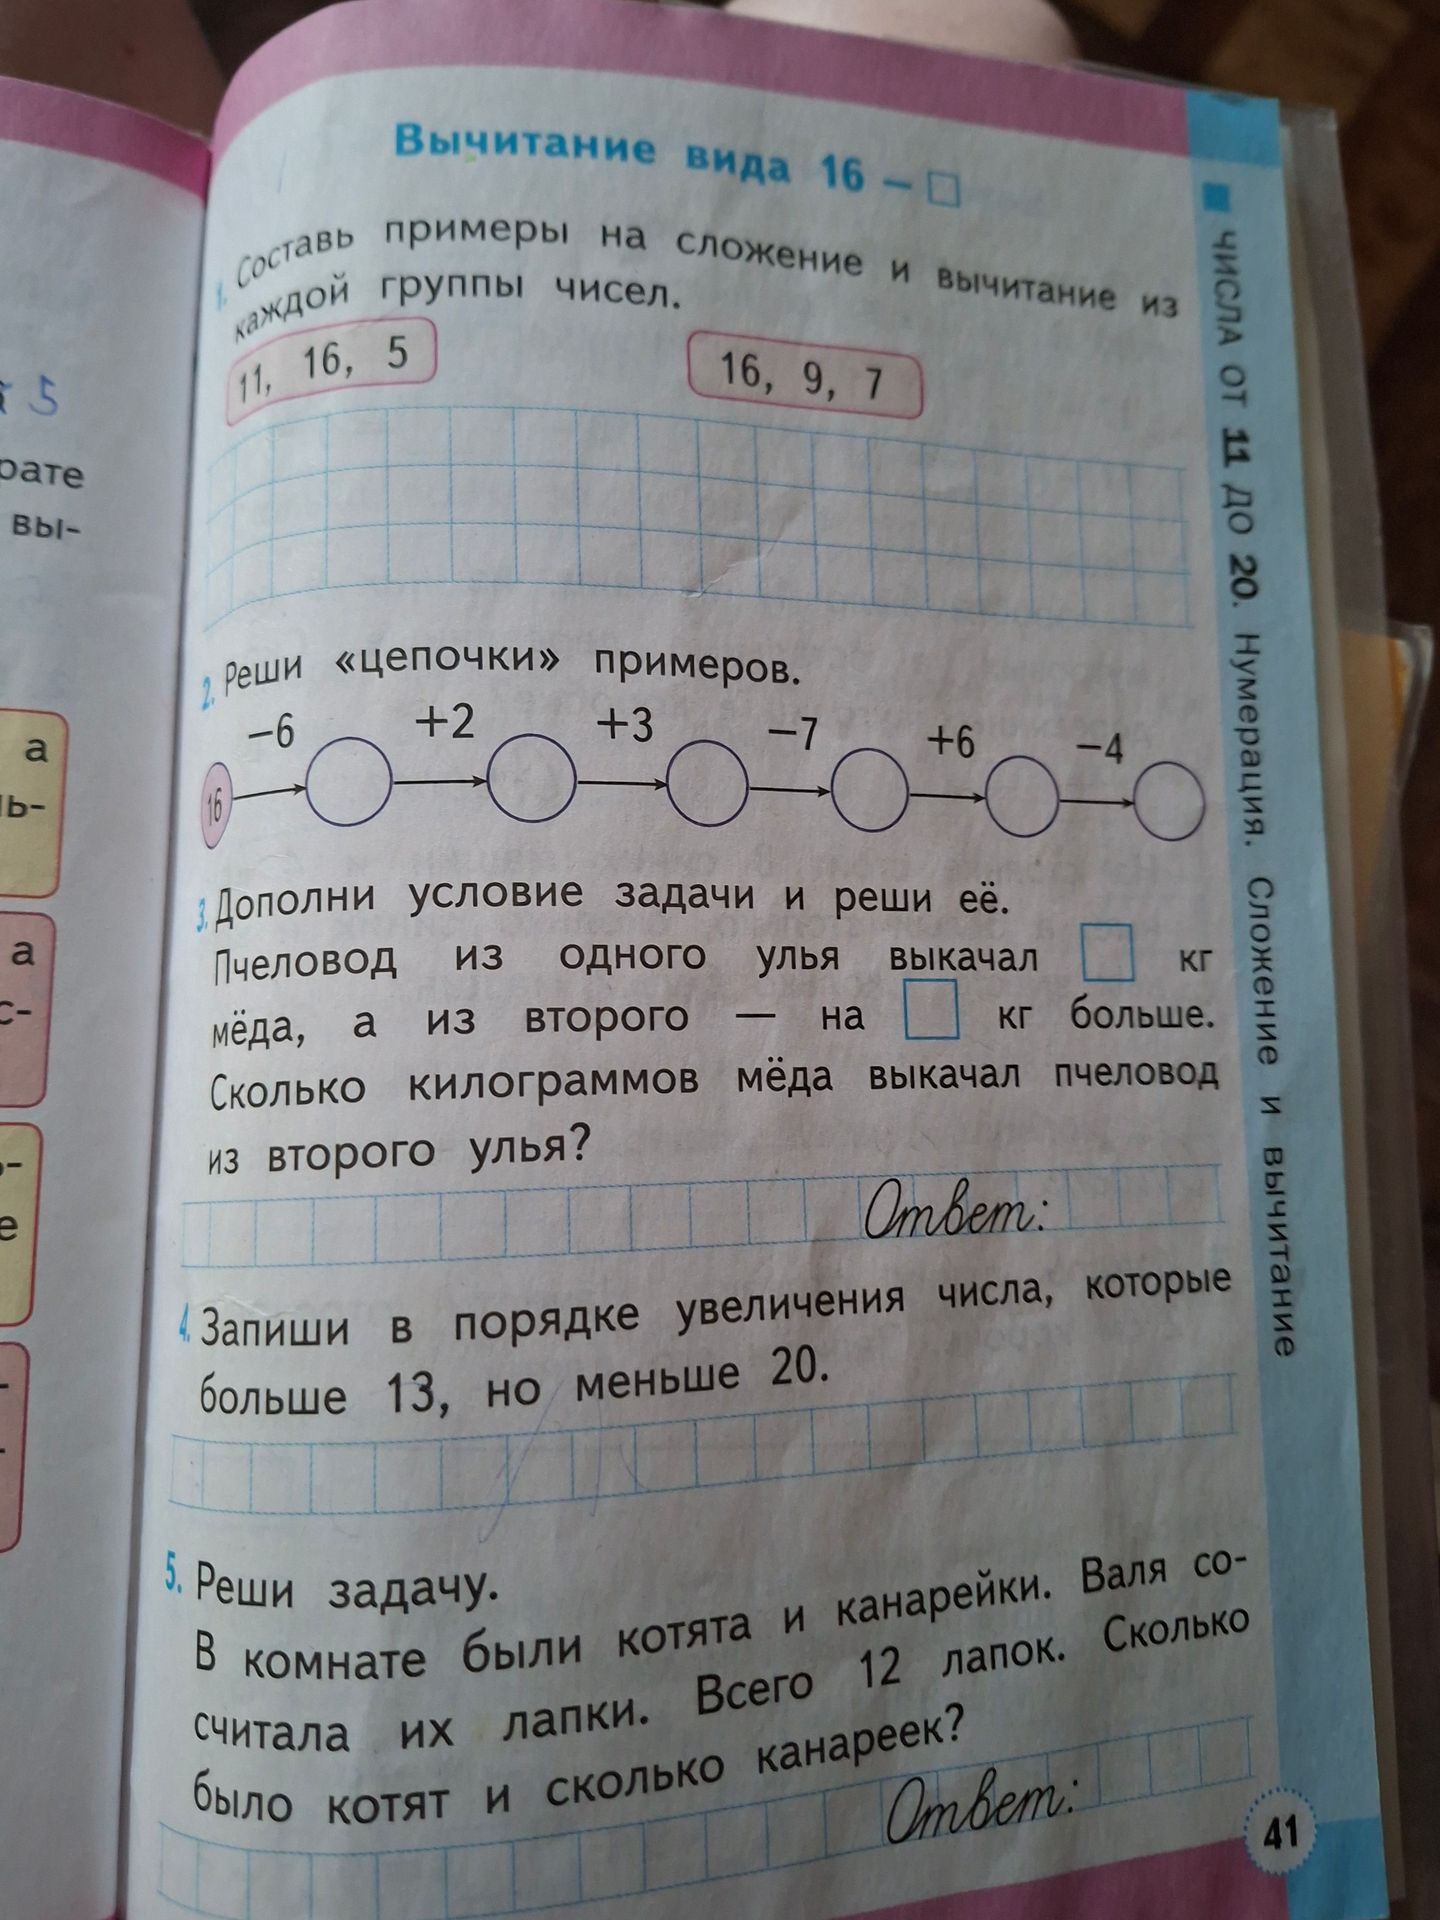 5
рате
вы-
а
ль-
а
с-
е
Вычитание вида 16 – □
1. Составь примеры на сложение и вычитание из
каждой группы чисел.
11, 16, 5
16, 9, 7
2. Реши «цепочки» примеров.
–6 +2 +3 –7 +6 –4
16
3. Дополни условие задачи и реши её.
Пчеловод из одного улья выкачал □ кг
мёда, а из второго — на □ кг больше.
Сколько килограммов мёда выкачал пчеловод
из второго улья?
Ответ:
4. Запиши в порядке увеличения числа, которые
больше 13, но меньше 20.
5. Реши задачу.
В комнате были котята и канарейки. Валя со-
считала их лапки. Всего 12 лапок. Сколько
было котят и сколько канареек?
Ответ:
41
ЧИСЛА ОТ 11 ДО 20. Нумерация. Сложение и вычитание